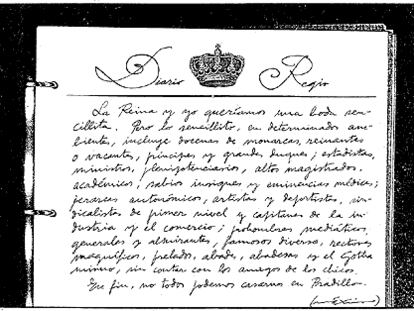 Diario Regio
La Reina y yo queríamos una boda sen-
cillita. Pero lo sencillito, en determinados am-
bientes, incluye docenas de monarcas, reinantes
o vacantes, príncipes y grandes duques; estadistas,
ministros, plenipotenciarios, altos magistrados,
académicos, sabios insignes y eminencias médicas;
jerarcas autonómicos, artistas y deportistas, sin-
dicalistas de primer nivel y capitanes de la in-
dustria y el comercio; prohombres mediáticos,
generales y almirantes, famosos diversos, rectores
magníficos, prelados, abades, abadesas y el Gotha
minino, sin contar con los amigos de los chicos.
En fin, no todos podemos casarnos en Pradillo.